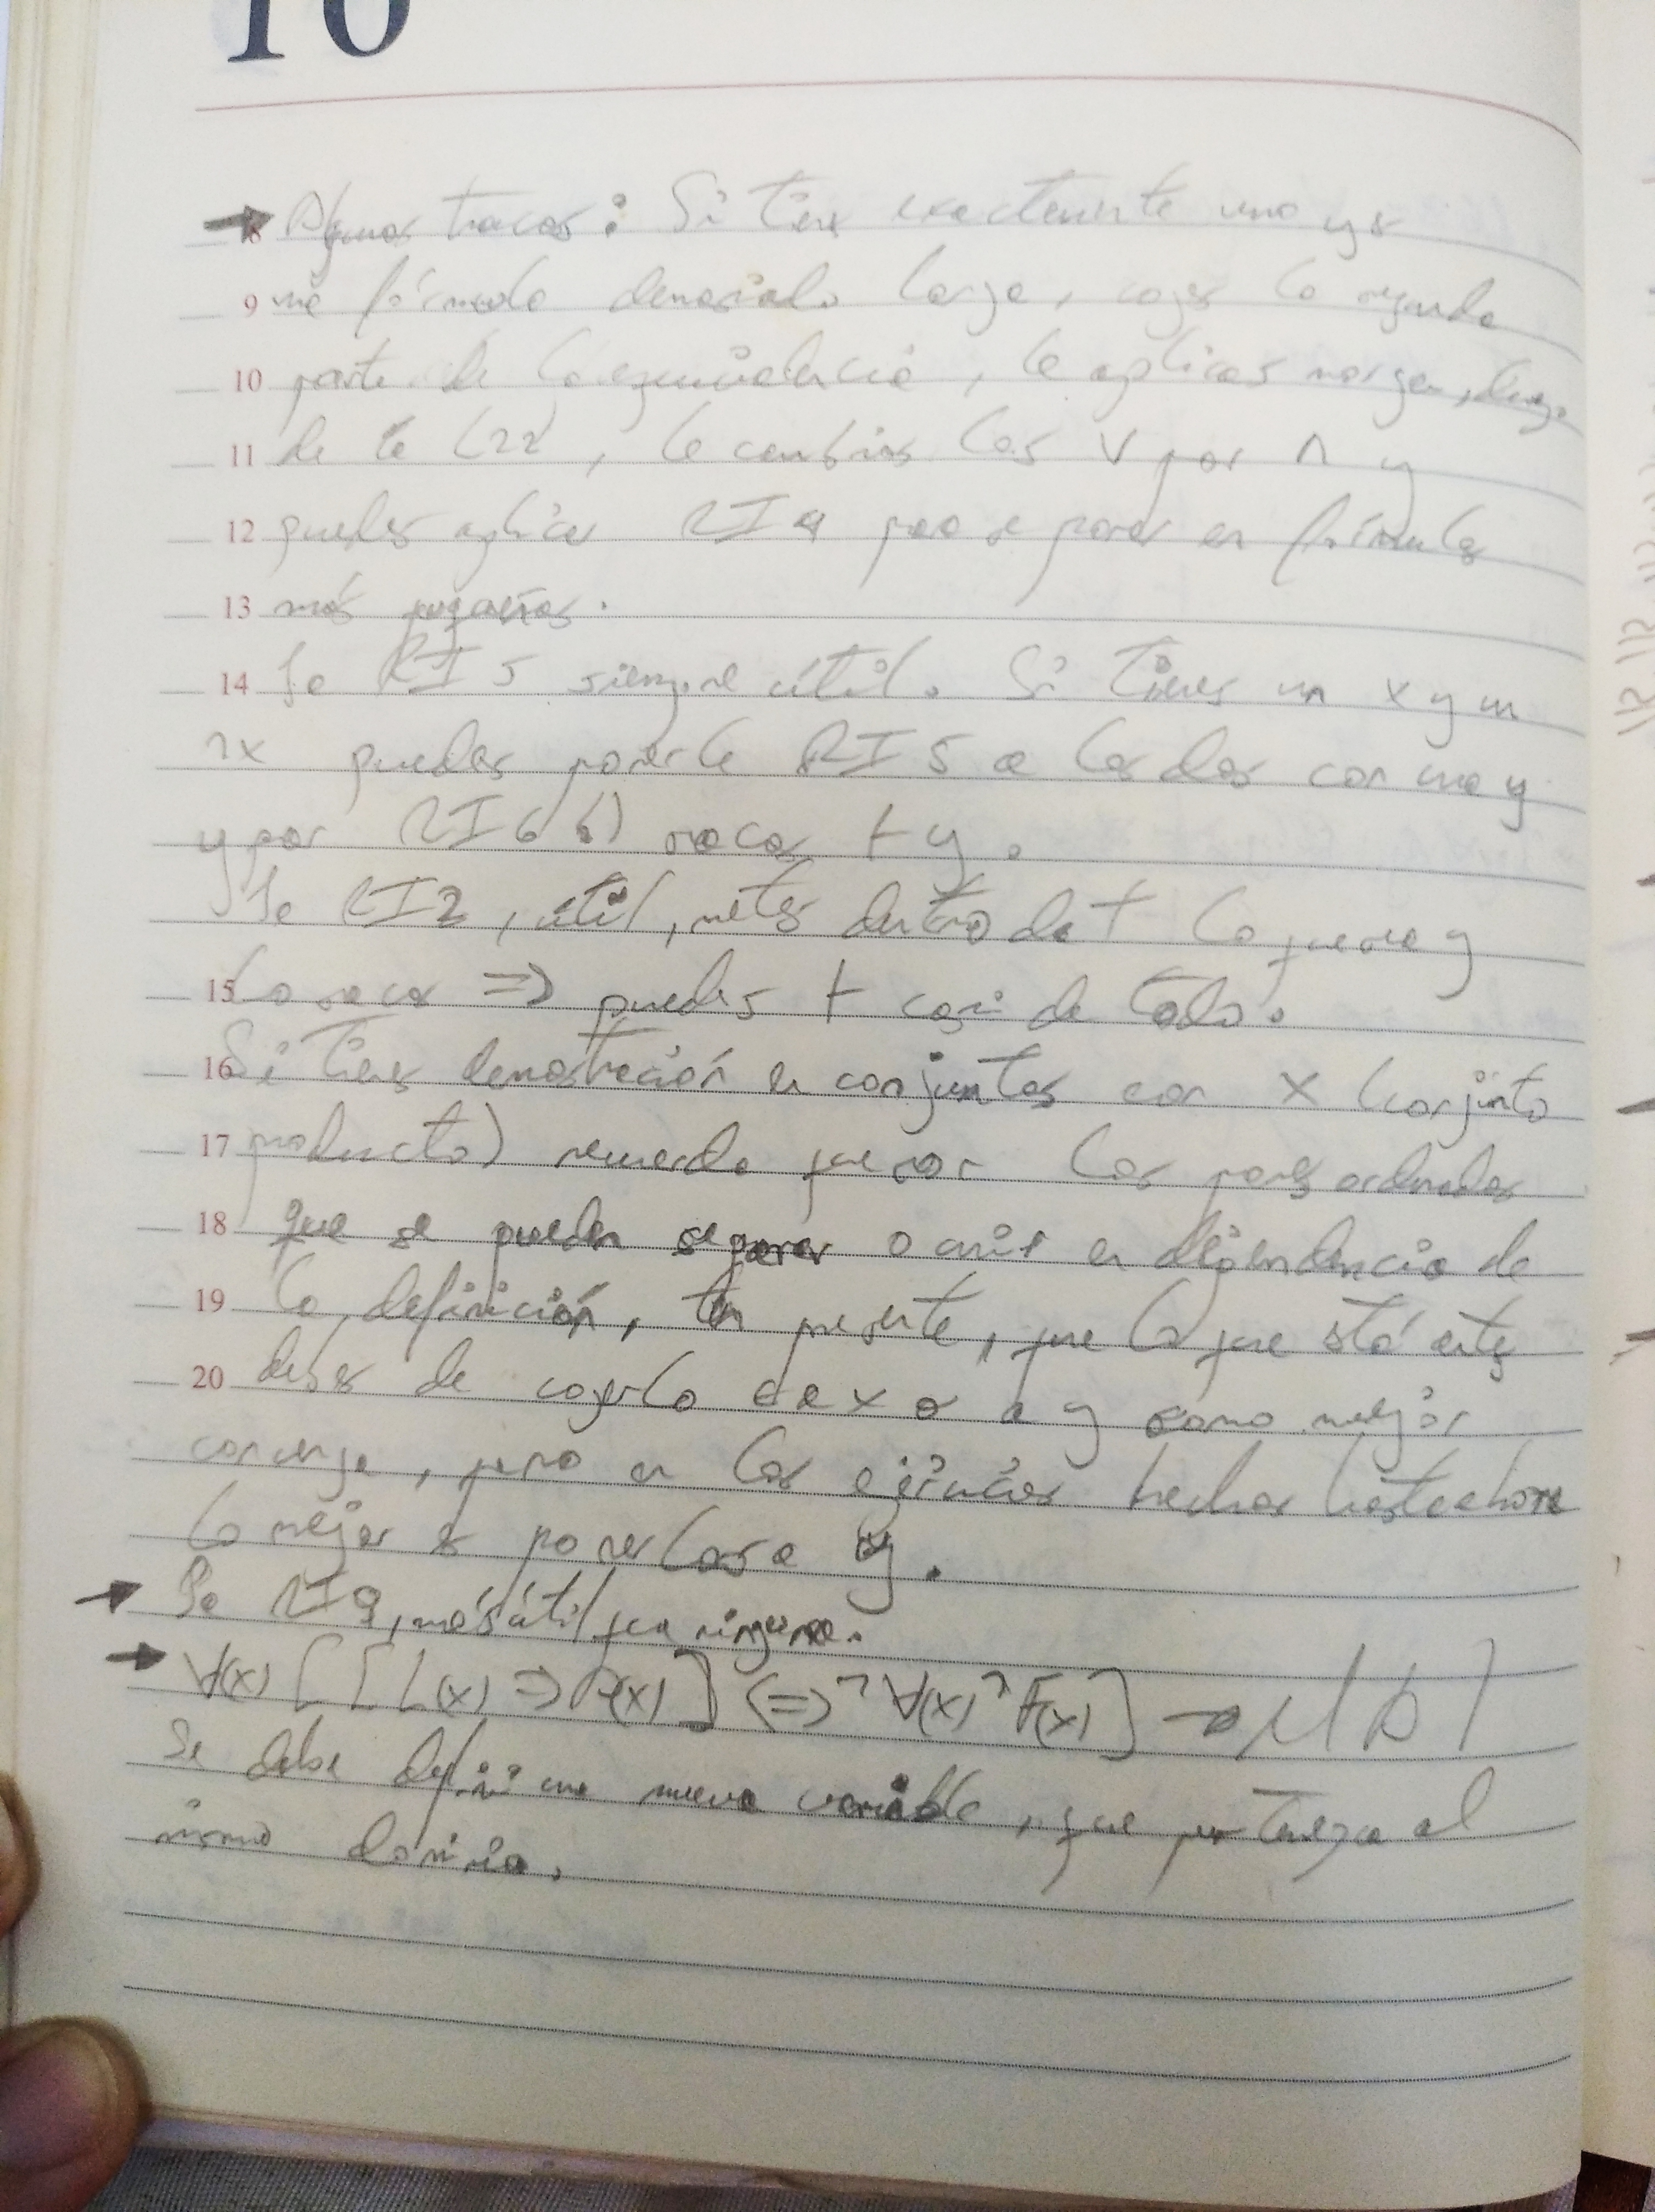 10
8 Algunos trucos: Si tienes exactamente uno y es
9 una fórmula demasiado larga, coges la segunda
10 parte de la equivalencia, le aplicas morgan, luego
11 de le L22, le cambias los ∨ por ∧ y
12 puedes aplicar RI9 para separar en fórmulas
13 más pequeñas.
14 La RI5 siempre útil. Si tienes un x y un
¬x puedes ponerle RI5 a los dos con una y
y por RI6 b) sacas ⊢ y.
La RI2, útil, metes dentro de ⊢ lo que sea y
15 lo sacas => puedes ⊢ casi de todo.
16 Si tienes demostración en conjuntos con X (conjunto
17 producto) recuerda que son los pares ordenados
18 que se pueden separar o unir en dependencia de
19 la definición, ten presente, que lo que está antes
20 debes de cogerlo a x o a y como mejor
convenga, pero en los ejercicios hechos hasta ahora
lo mejor es ponerlos a y.
La RI9, más útil que ninguna.
∀(x) [[L(x) => P(x)] <=> ¬∀(x) ¬F(x)]
Se debe definir una nueva variable, que pertenezca al
mismo dominio.